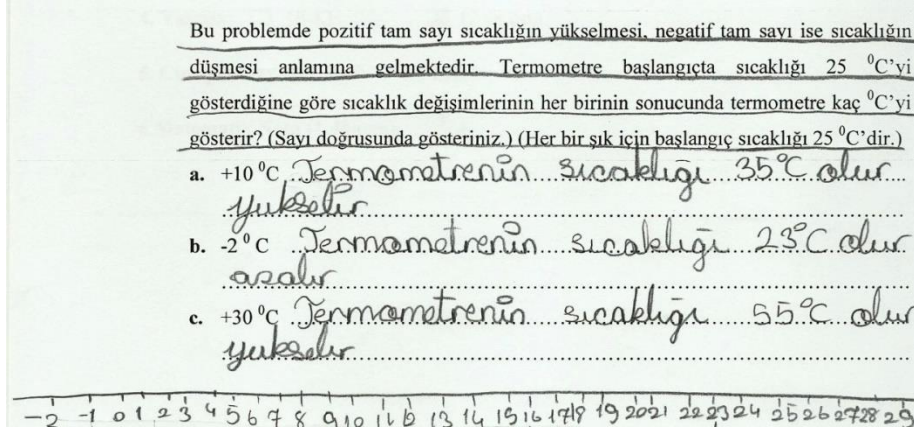 Bu problemde pozitif tam sayı sıcaklığın yükselmesi, negatif tam sayı ise sıcaklığın
düşmesi anlamına gelmektedir. Termometre başlangıçta sıcaklığı 25 ⁰C’yi
gösterdiğine göre sıcaklık değişimlerinin her birinin sonucunda termometre kaç ⁰C’yi
gösterir? (Sayı doğrusunda gösteriniz.) (Her bir şık için başlangıç sıcaklığı 25 ⁰C’dir.)
a. +10 ⁰C Termometrenin sıcaklığı 35°C olur
yükselir
b. -2 ⁰ C Termometrenin sıcaklığı 23°C olur
azalır
c. +30 ⁰C Termometrenin sıcaklığı 55°C olur
yükselir
-2 -1 0 1 2 3 4 5 6 7 8 9 10 11 12 13 14 15 16 17 18 19 20 21 22 23 24 25 26 27 28 29